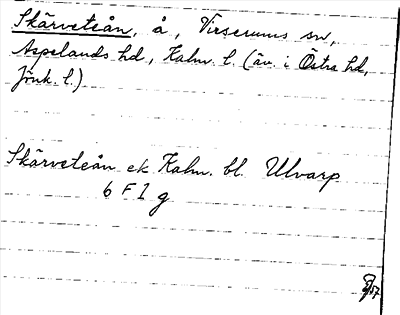 Skärveteån, å, Virserums sn,
Aspelands hd, Kalm. l. (äv. i Östra hd,
Jönk. l.)
Skärveteån ek Kalm. bl. Ulvarp
6 F 1 g
57